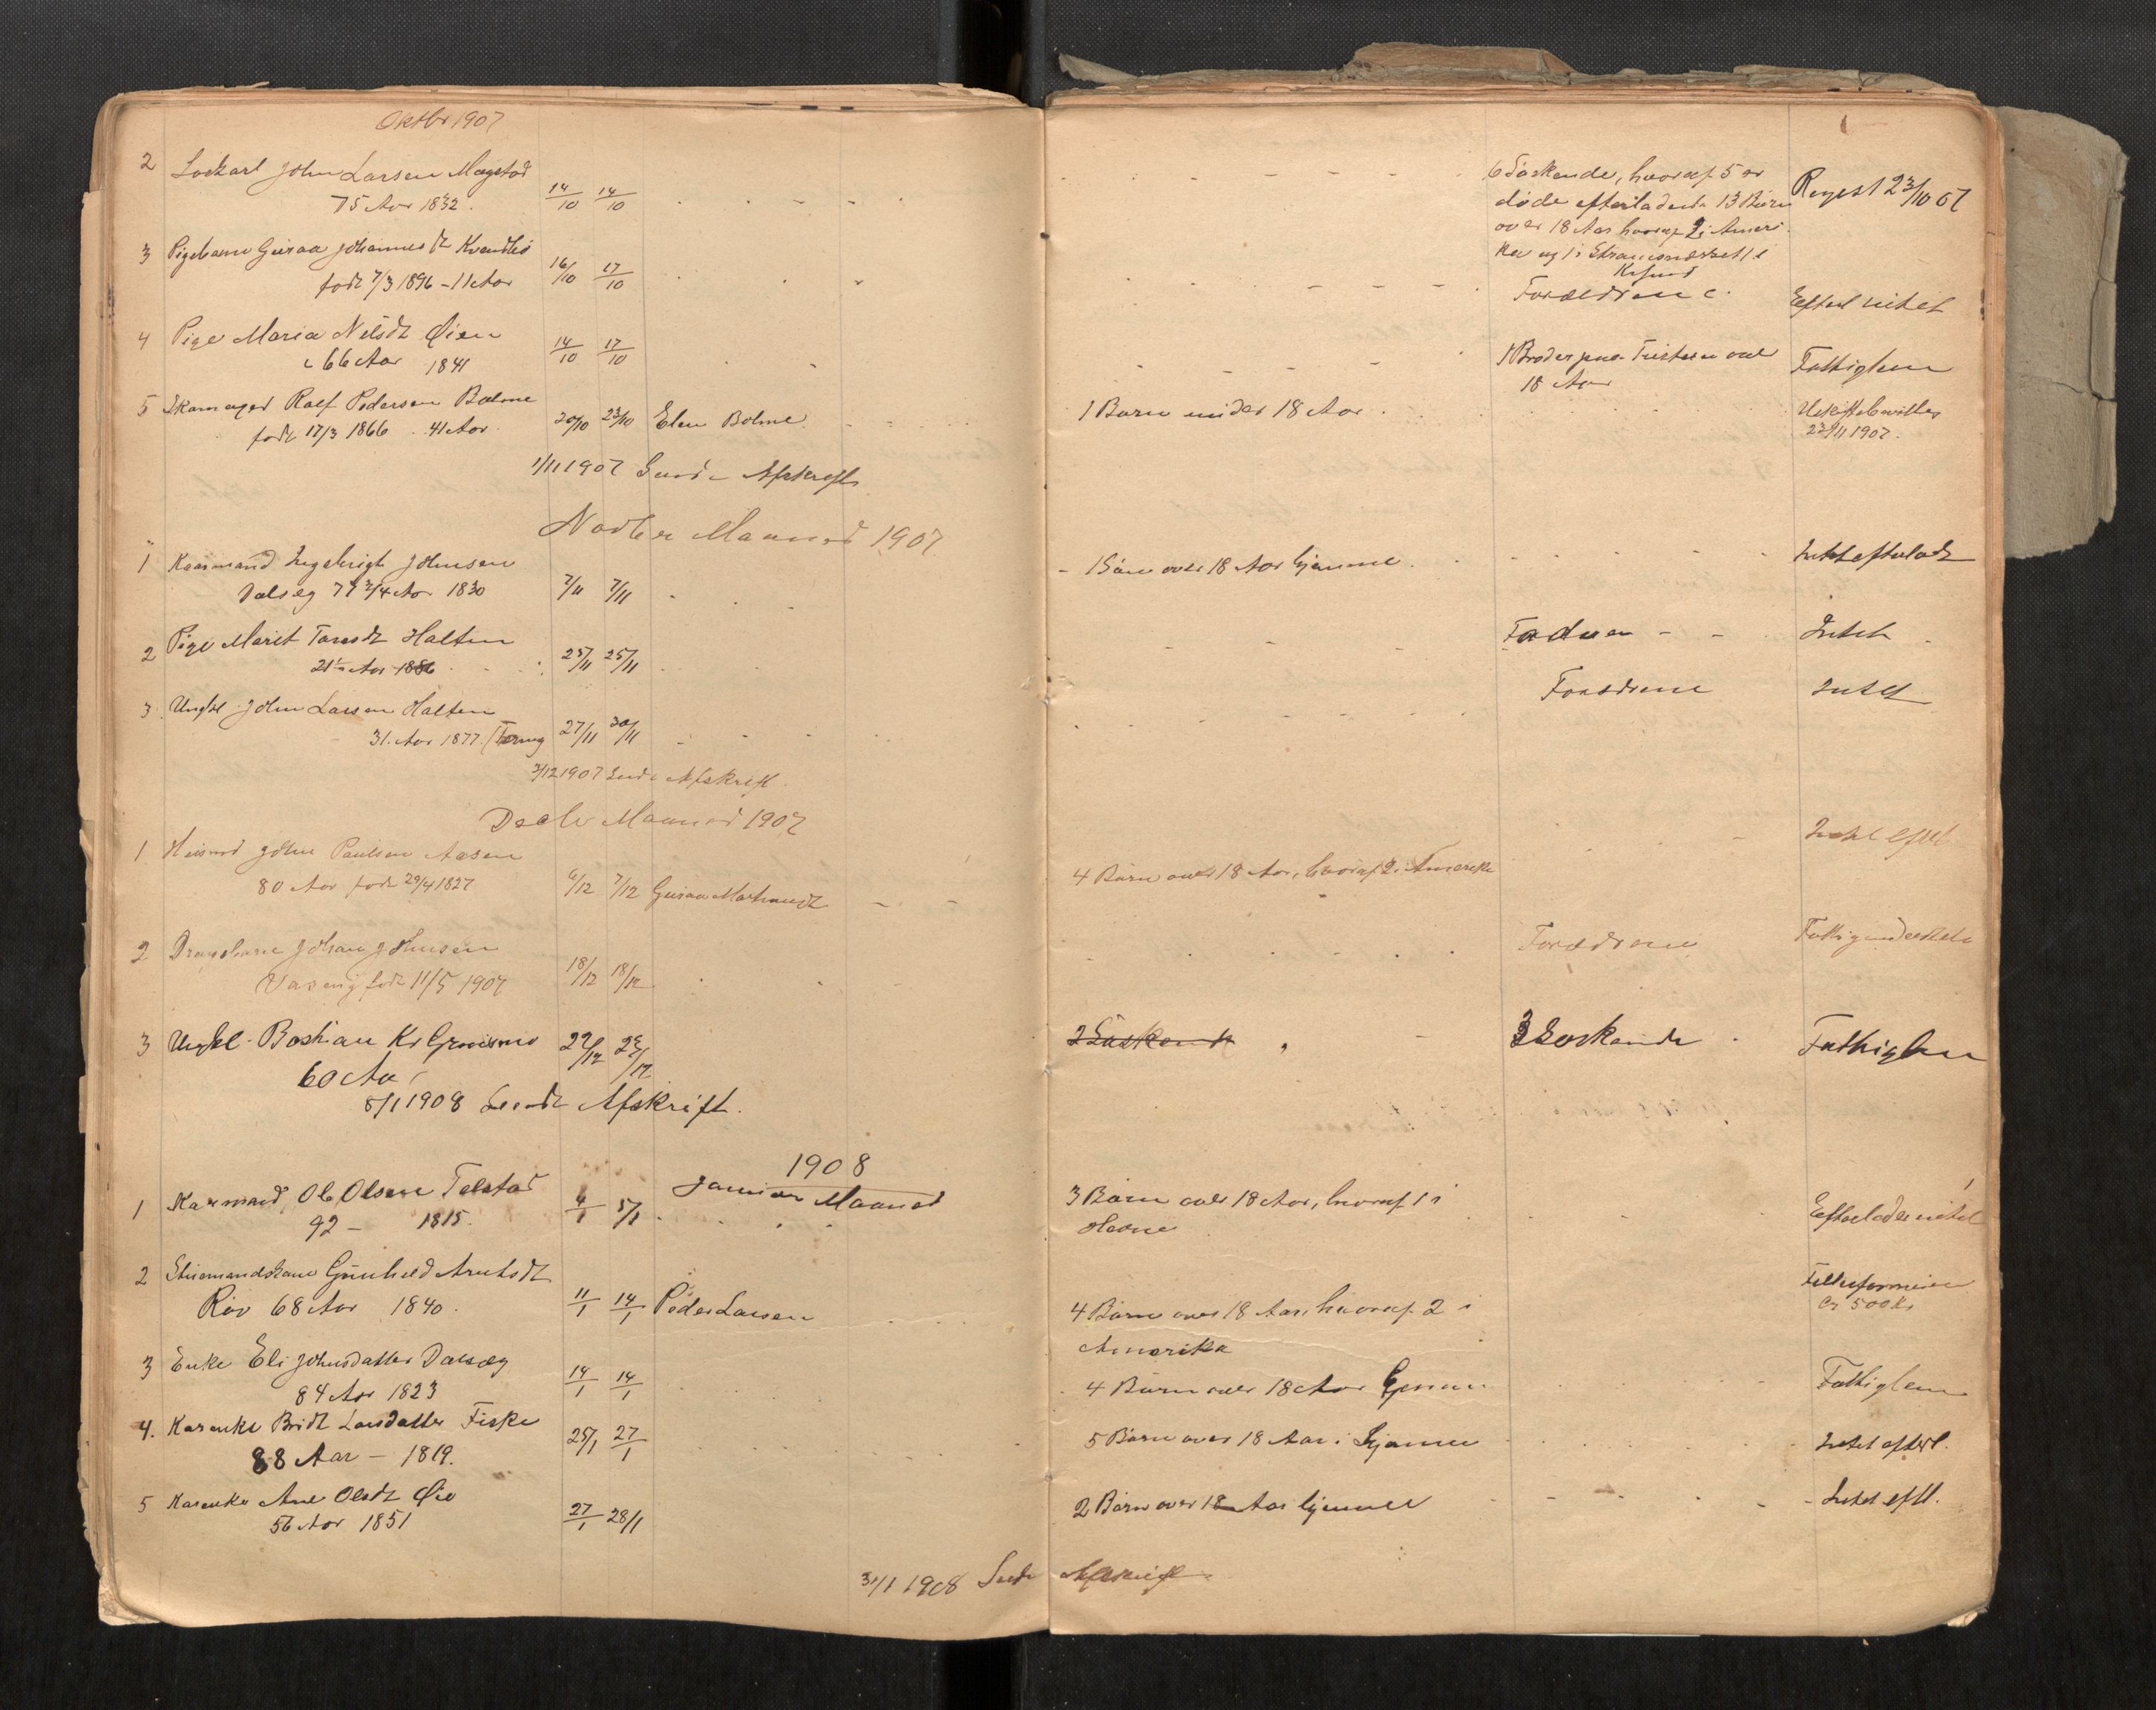 Oktbr 1907
2 John Larsen Megstad
75 Aar 1832.
14/10 14/10
6 Söskende, hvoraf 5 er
døde efterladende 13 Børn
over 18 Aar hvoraf 2 i Ameri
ka og 1 i
Regist 23/10 07
3 Pigebarn Guraa Johannesdt
født 7/3 1896 - 11 Aar
16/10 17/10
Forældrene
Efterl intet
4 Pige Maria Nilsdt Øien
66 Aar 1841
14/10 17/10
1 Broder over
18 Aar
Fattiglem
5 Skomager Rolf Pedersen Bolme
født 17/3 1866 41 Aar
20/10 23/10 Elen Bolme
1 Barn under 18 Aar
23/11 1907.
1/11 1907 Sendt Afskrift
Novbr Maaned 1907
1 Kaarmand Ingebrigt Johnsen
Dalseg 77 3/4 Aar 1830
7/11 7/11
1 Barn over 18 Aar hjemme
Intet efterladt
2 Pige Marit Halten
21 Aar 1886
25/11 25/11
Faderen
Intet
3 Ungkl John Larsen Halten
31 Aar 1877
27/11 30/11
Forældrene
Intet
3/12 1907 Sendt Afskrift.
Decbr Maaned 1907
1 Huusmd John Paulsen Aasen
80 Aar født 29/4 1827
6/12 7/12 Guraa
4 Børn over 18 Aar, hvoraf 2 i Amerika
Intet eftl
2 Drengebarn Johan Johnsen
født 11/5 1907
18/12 18/12
Forældrene
3 Ungkl. Bastian Kr
60 Aar
22/12
2 Søskende
3 Søskende
Fattiglem
8/1 1908 Sendt Afskrift.
1908
Januar Maaned
1 Karmand Ole Olsen Telstad
92 - 1815.
4/1 5/1
3 Børn over 18 Aar, hvoraf 1 i
Hevne
Efterlader intet
2 Gunhild Arntsdt
Röv 68 Aar 1840.
11/1 14/1 Peder Larsen
4 Børn over 18 Aar, hvoraf 2 i
Amerika
Cr 500
3 Enke Eli Johnsdatter Dalseg
84 Aar 1823
14/1 14/1
4 Børn over 18 Aar
Fattiglem
4. Karenke Larsdatter Fiske
88 Aar - 1819.
25/1 27/1
5 Børn over 18 Aar i Hjemme
Intet efterl.
5 Karenke Ane Olsdt Øie
56 Aar 1851
27/1 28/1
2 Børn over 18 Aar hjemme
Intet eftl.
31/1 1908 Sendt Afskrift